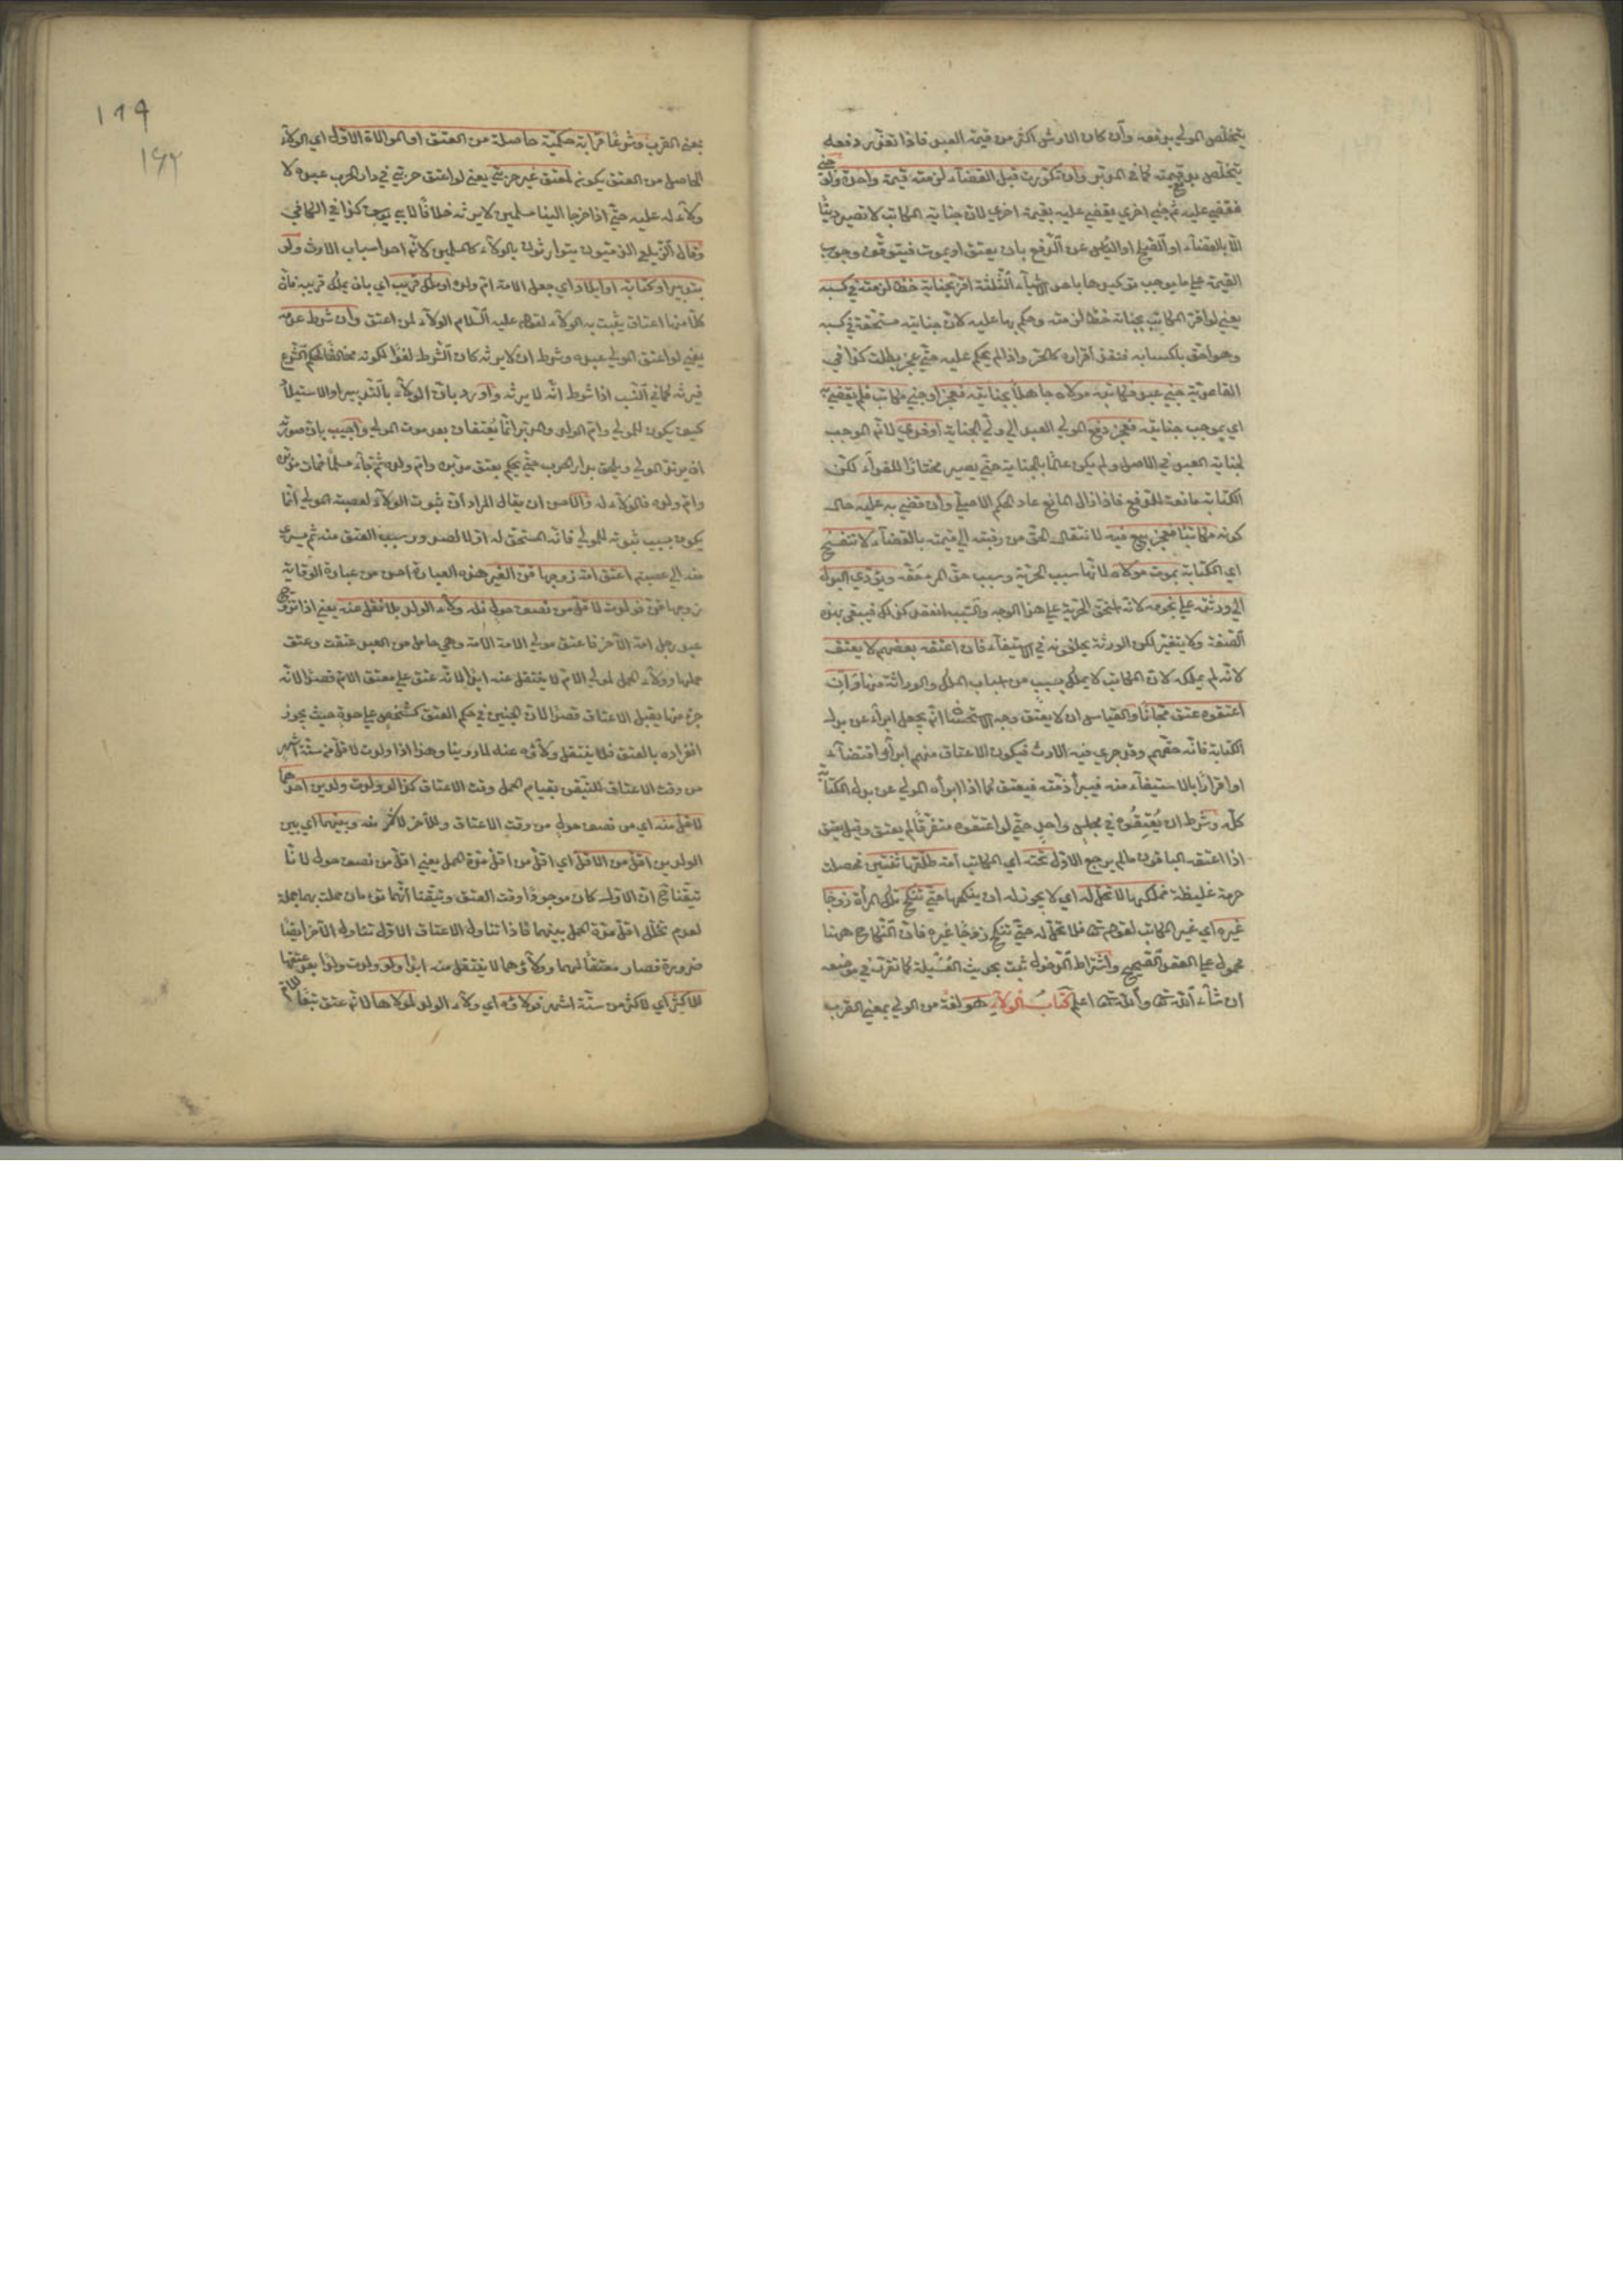 يتخلّص المولى بدفعه وان كان الارش اكثر من قيمة العبد فاذا تعذر دفعه
يتخلّص بدفع قيمته كما في المدبر وان تكررت قبل القضاء لزمته قيمة واحدة ولو جنى
فقضى عليه ثم جنى اخرى يقضى عليه بقيمة اخرى لان جناية المكاتب لا تصير دينًا
الا بالقضاء او الصلح او الياس عن الدفع بان يعتق او يموت فيتوقف وجوب
القيمة على ما يوجب توكيدها باحد الاشياء الثلثة اقر بجناية خطأ لزمته في كسبه
يعني لو اقر المكاتب بجناية خطأ لزمته وحكم بها عليه لان جنايته مستحقة في كسبه
وهو احق باكسابه فنفذ اقراره كالحر واذا لم يحكم عليه حتى عجز بطلت كذا في
القاعدية جنى عبد فكاتبه مولاه جاهلًا بجنايته فعجز او جنى مكاتب فلم يقض به
اي بموجب جنايته فعجز دفع المولى العبد الى ولي الجناية او فدى لانه الموجب
لجناية العبد في الاصل ولم يكن عالمًا بالجناية حتى يصير مختارًا للفداء لكن
الكتابة مانعة للدفع فاذا زال المانع عاد الحكم الاصلي وان قضى به عليه حال
كونه مكاتبًا فعجز بيع فيه لانتقال الحق من رقبته الى قيمته بالقضاء لا تنفسخ
اي الكتابة بموت مولاه لانها سبب الحرية وسبب حق المرء حقه ويؤدي البدل
الى ورثته على نجومه لانه استحق الحرية على هذا الوجه والسبب انعقد كذلك فيبقى بهذه
الصفة ولا يتغير لكن الورثة يخلفونه في الاستيفاء فان اعتقه بعضهم لا يعتق
لانه لم يملكه لان المكاتب لا يملك بسبب من اسباب الملك والوراثة منها وان
اعتقوه عتق مجانًا والقياس ان لا يعتق وجه الاستحسان انه يجعل ابراء عن بدل
الكتابة فانه حقهم وقد جرى فيه الارث فيكون الاعتاق منهم ابراء اقتضاء
او اقرارًا بالاستيفاء منه فيبرأ ذمته فيعتق كما اذا ابرأه المولى عن بدل الكتابة
كله وشرط ان يُعتِقُوه في مجلس واحد حتى لو اعتقوه متفرقًا لم يعتق وقيل يعتق
اذا اعتقه الباقون ما لم يرجع الاول تحته اي المكاتب امة طلقها ثنتين فحصلت
حرمة غليظة فملكها لا تحل له اي لا يجوز له ان ينكحها حتى تنكح تلك المرأة زوجًا
غيره اي غير المكاتب لقوله تعالى فلا تحل له حتى تنكح زوجًا غيره فان النكاح ههنا
محمول على العقد الصحيح واشتراط الدخول ثبت بحديث العُسَيلة كما تقرر في موضعه
ان شاء الله تعالى والله تعالى اعلم كتاب الولاء هو لغة من الولي بمعنى القرب
١٦٩
١٤٢
بمعنى القرب وشرعًا قرابة حكمية حاصلة من العتق او الموالاة الاول اي الولاء
الحاصل من العتق يكون لمعتق غير حربي يعني لو اعتق حربي في دار الحرب عبده لا
ولاء له عليه حتى اذا خرجا الينا مسلمين لا يرثه خلافًا لابي يوسف كذا في الكافي
وقال الزيلعي الذميون يتوارثون بالولاء كالمسلمين لانه احد اسباب الارث ولو
بتدبير او كتابة او ايلاد اي جعل الامة ام ولده او ملك قريب اي بان يملك قريبه فان
كلًا منها اعتاق يثبت به الولاء لقوله عليه السلام الولاء لمن اعتق وان شرط عدمه
يعني لو اعتق المولى عبده وشرط ان لا يرثه كان الشرط لغوًا لكونه مخالفًا لحكم الشرع
فيرثه كما في النسب اذا شرط انه لا يرثه واورد بان الولاء بالتدبير او الاستيلاد
كيف يكون للمولى وام الولد والمدبر انما يُعتقان بعد موت المولى واجيب بان صورته
ان يرتد المولى ويلحق بدار الحرب حتى يحكم بعتق مدبره وام ولده ثم جاء مسلمًا فمات مدبره
وام ولده فالولاء له والاحسن ان يقال المراد ان ثبوت الولاء لعصبة المولى انما
يكون بسبب ثبوته للمولى فانه المستحق له اولا لصدور سبب العتق منه ثم يسري
منه الى عصبته اعتق امة زوجها قن الغير هذه العبارة احسن من عبارة الوقاية
زوجها قن فولدت لاقل من نصف حول فله ولاء الولد بلا نقل عنه يعني اذا تزوج
عبد رجل امة الآخر فاعتق مولى الامة الامة وهي حامل من العبد عتقت وعتق
حملها وولاء الحمل لمولى الام لا ينتقل عنه ابدًا لانه عتق على معتق الام قصدًا لانه
جزء منها يقبل الاعتاق قصدًا لان الجنين في حكم العتق كشخص على حدة حيث يجوز
افراده بالعتق فلا ينتقل ولاؤه عنه لما روينا وهذا اذا ولدت لاقل من ستة اشهر
من وقت الاعتاق للتيقن بقيام الحمل وقت الاعتاق كذا لو ولدت ولدين احدهما
لاقل منه اي من نصف حول من وقت الاعتاق والآخر لاكثر منه وبينهما اي بين
الولدين اقل من الاقل اي اقل من اقل مدة الحمل يعني اقل من نصف حول لانا
تيقنا ح ان الاول كان موجودًا وقت العتق وتيقنا انهما توأمان حملت بهما جملة
لعدم تخلل اقل مدة الحمل بينهما فاذا تناول الاعتاق الاول تناول الآخر ايضًا
ضرورة فصار معتقًا لهما وولاؤهما لا ينتقل منه ابدًا ولو ولدت ولدًا بعد عتقها
للاكثر اي لاكثر من ستة اشهر فولاؤه اي ولاء الولد لمولاها لانه عتق تبعًا للام